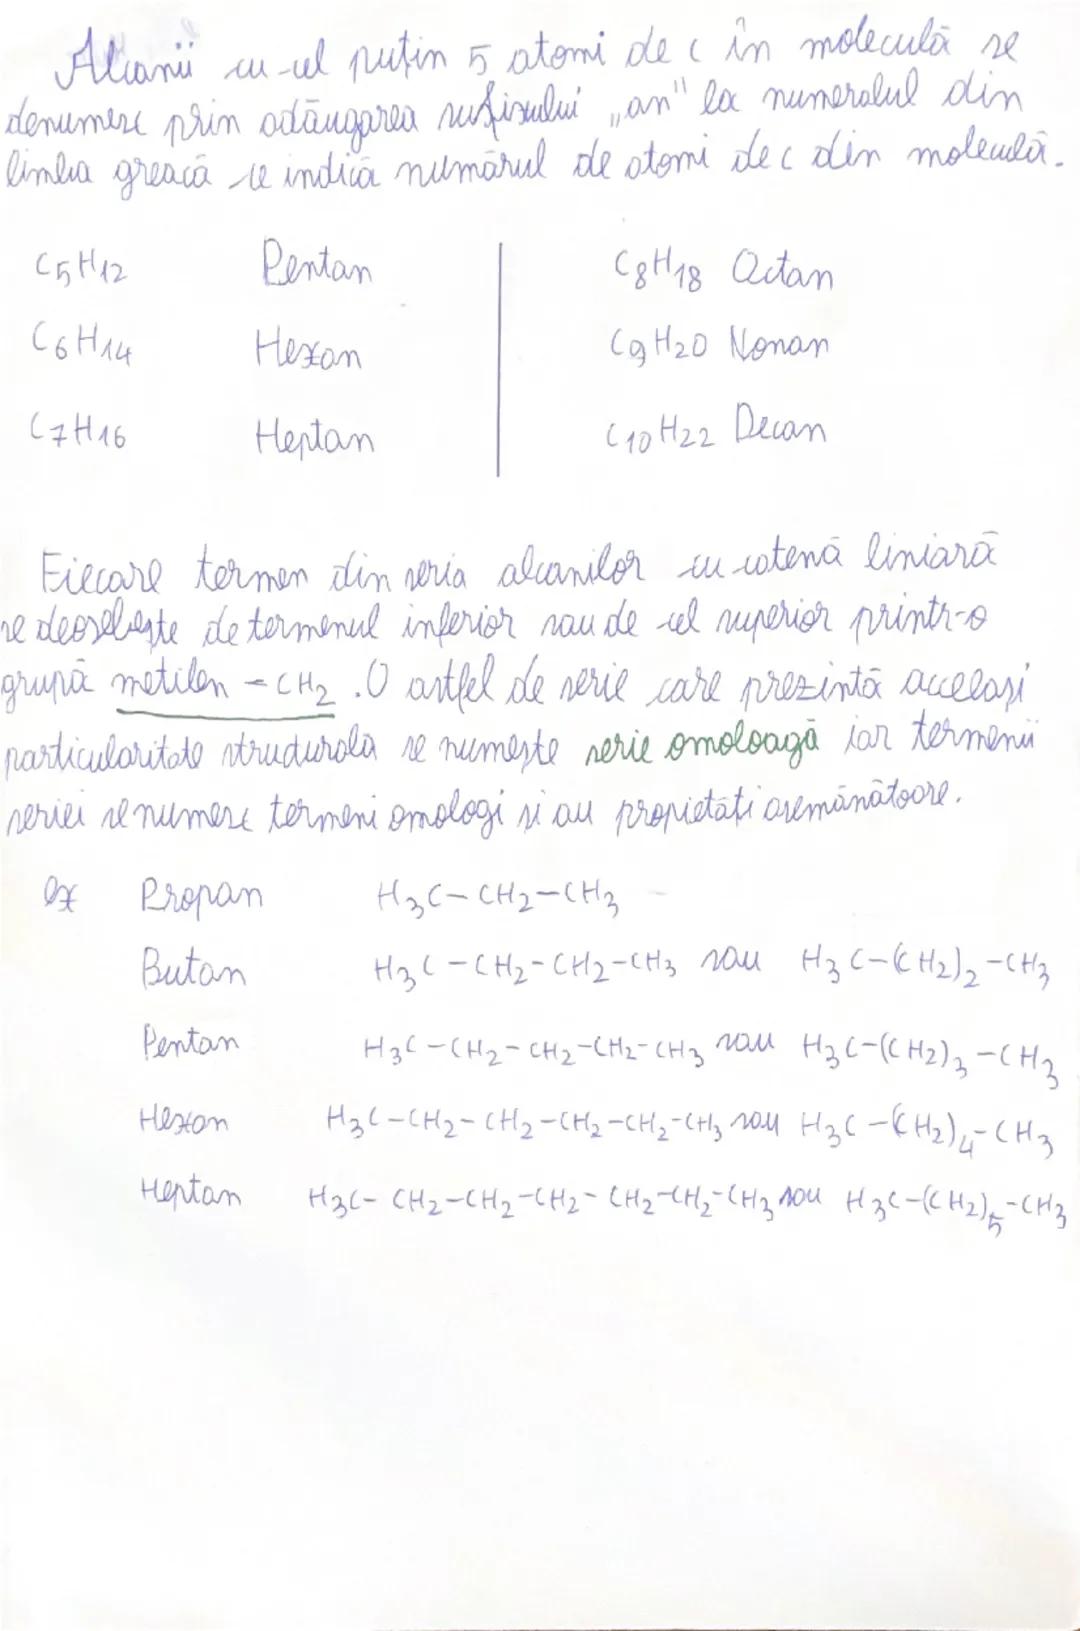 Alcanii cu cel puțin 5 atomi de C în moleculă se
denumesc prin adăugarea sufixului „an" la numeralul din
limba greacă ce indică numărul de atomi de C din moleculă.
C5H12 Pentan C8H18 Octan
C6H14 Hexan C9H20 Nonan
C7H16 Heptan C10H22 Decan
Fiecare termen din seria alcanilor cu catenă liniară
se deosebește de termenul inferior sau de cel superior printr-o
grupă metilen -CH2. O astfel de serie care prezintă aceeași
particularitate structurală se numește serie omoloagă iar termenii
seriei se numesc termeni omologi si au propietăți asemănătoare.
Ex Propan H3C-CH2-CH3
Butan H3C-CH2-CH2-CH3 sau H3C-(CH2)2-CH3
Pentan H3C-CH2-CH2-CH2-CH3 sau H3C-(CH2)3-CH3
Hexan H3C-CH2-CH2-CH2-CH2-CH3 sau H3C-(CH2)4-CH3
Heptan H3C-CH2-CH2-CH2-CH2-CH2-CH3 sau H3C-(CH2)5-CH3